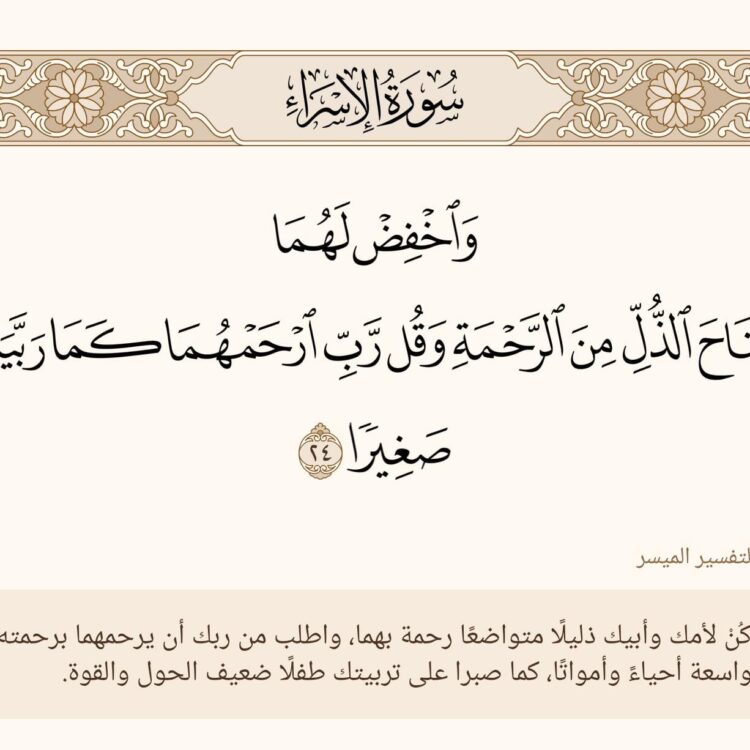 سُورَةُ الإِسْرَاءِ
وَٱخْفِضْ لَهُمَا
نَاحَ ٱلذُّلِّ مِنَ ٱلرَّحْمَةِ وَقُل رَّبِّ ٱرْحَمْهُمَا كَمَا رَبَّيَ
صَغِيرًا ٢٤
لتفسير الميسر
كُنْ لأمك وأبيك ذليلًا متواضعًا رحمة بهما، واطلب من ربك أن يرحمهما برحمته
واسعة أحياءً وأمواتًا، كما صبرا على تربيتك طفلًا ضعيف الحول والقوة.